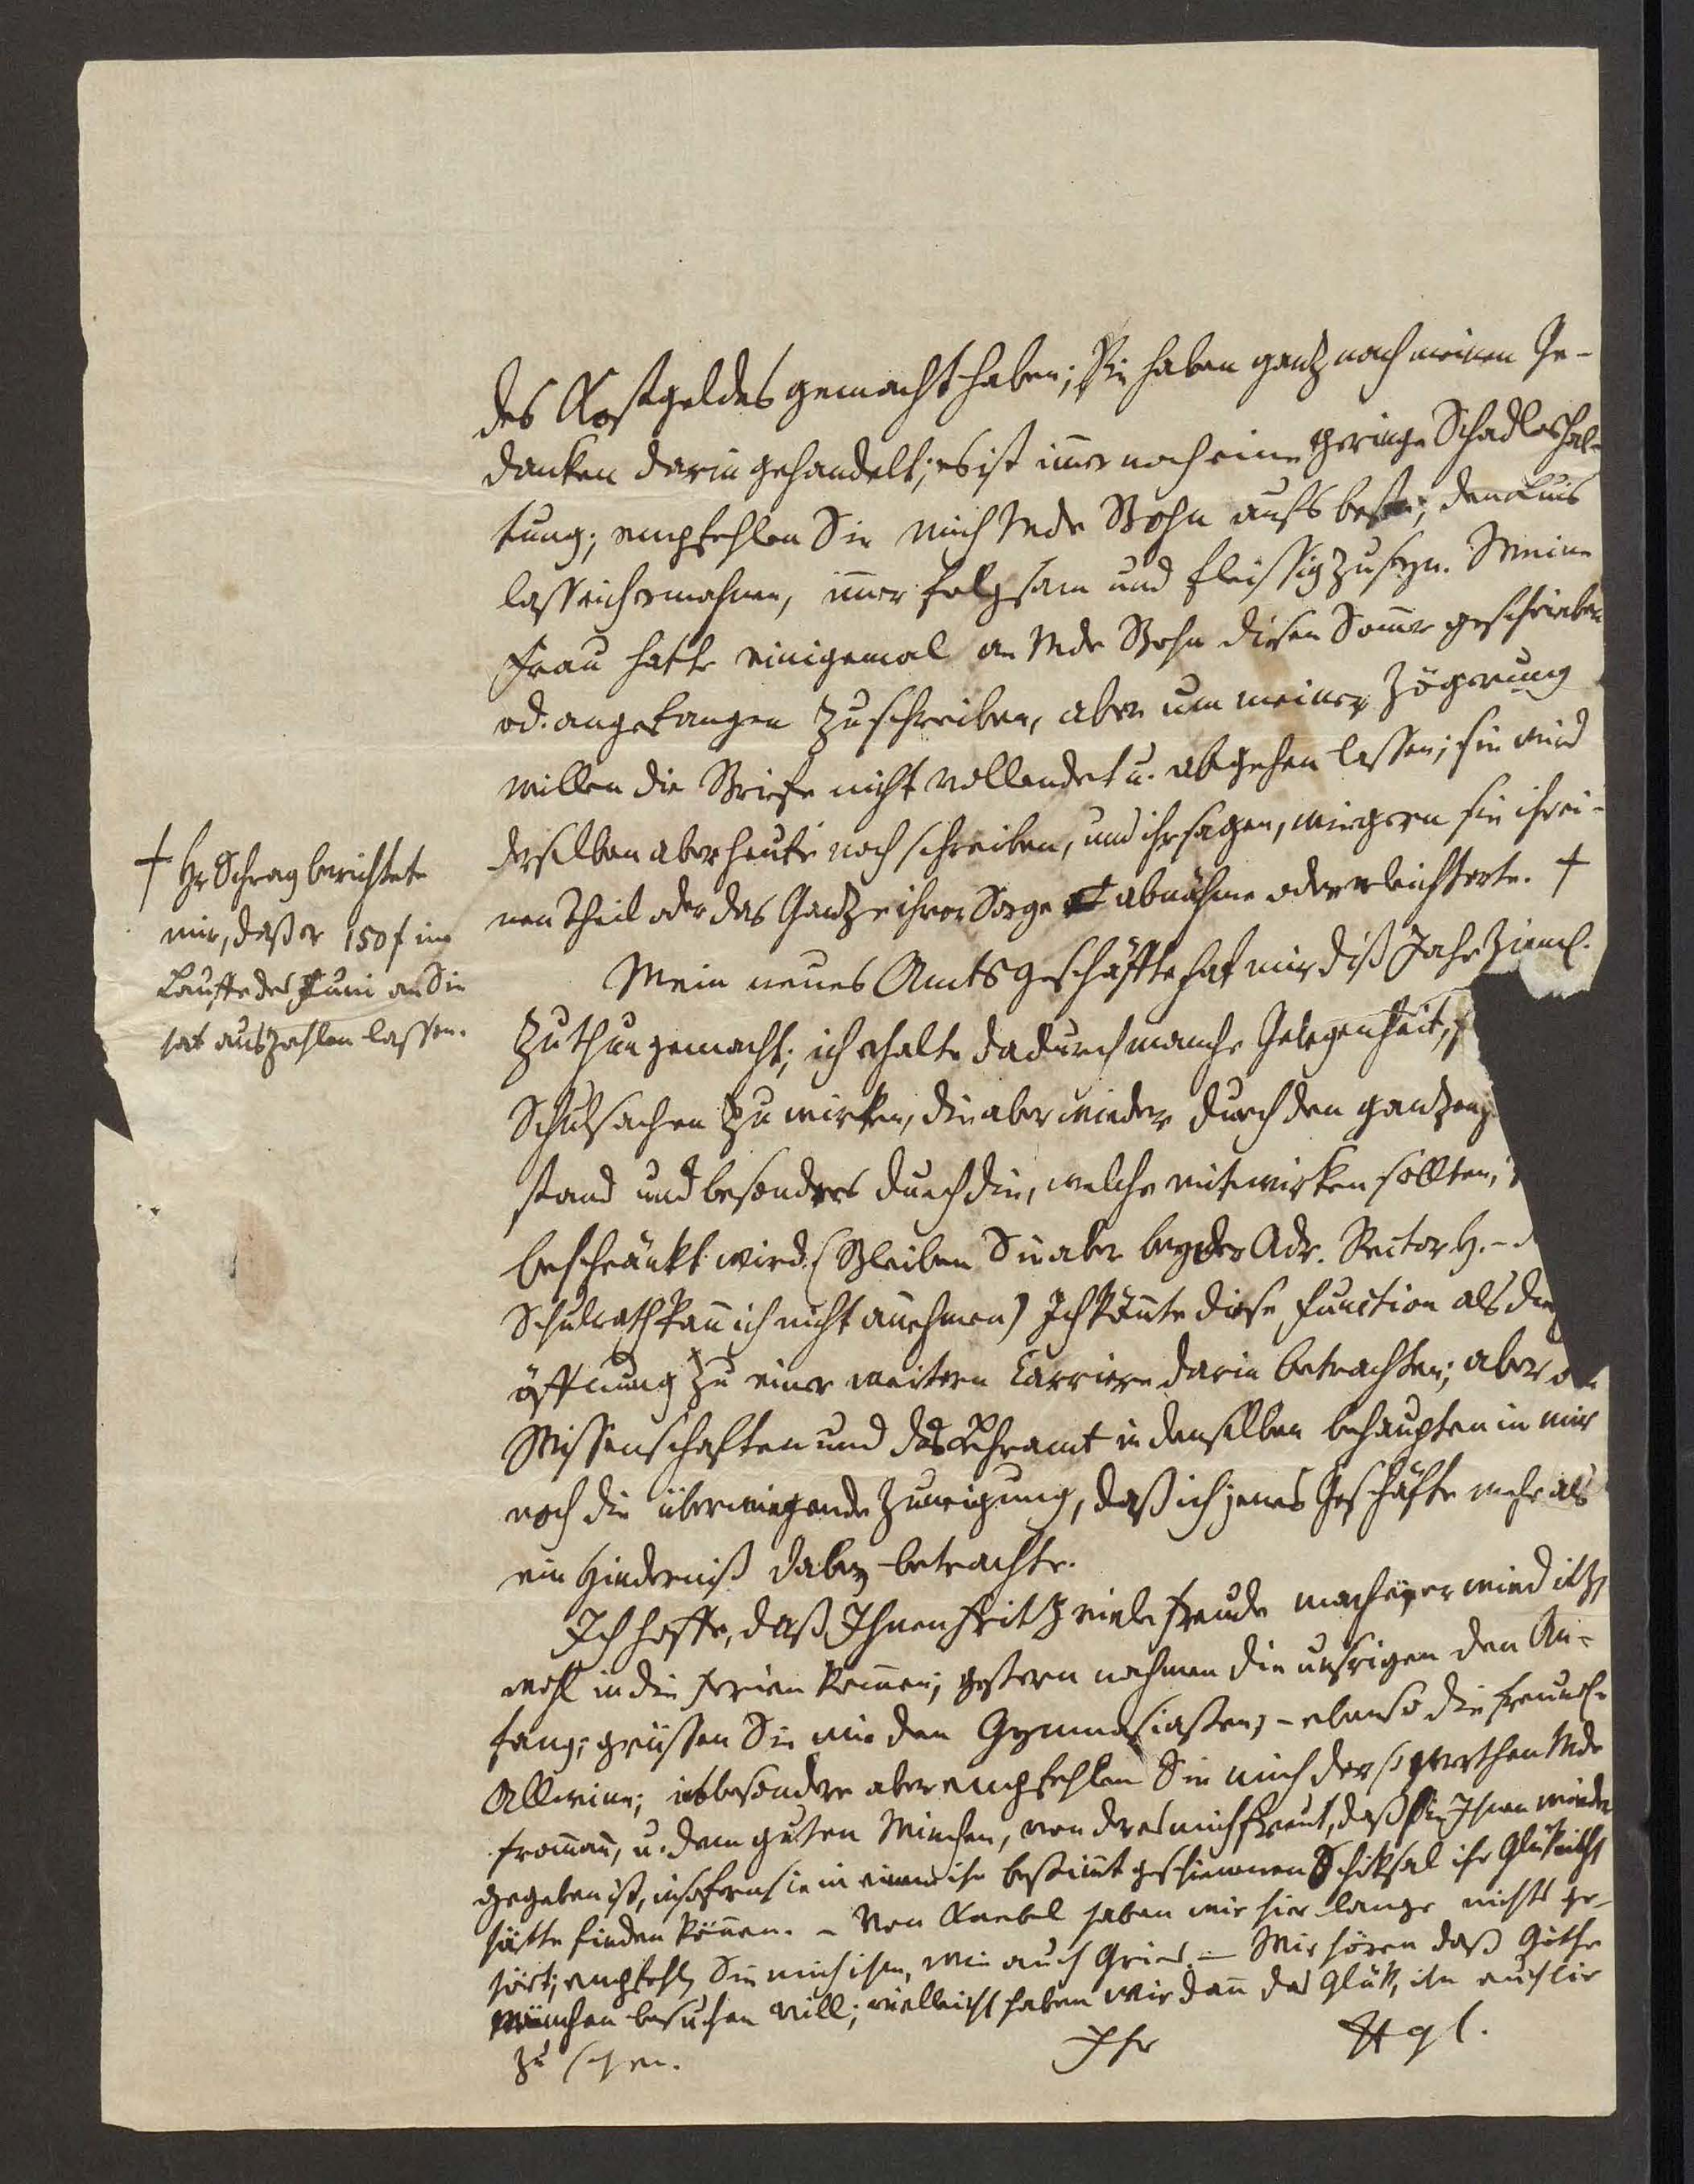 des Kostgeldes gemacht haben; Sie haben ganz nach meinen Ge-
danken darin gehandelt; es ist im̄er noch eine geringe Schadloshal-
tung; empfehlen Sie mich Mde Bohn aufs beste; den Luis
lass ich ermahnen, im̄er folgsam und fleissig zu seyn. Meine
Frau hatte einigemal an Mde Bohn diesen Som̄er geschrieben
od. angefangen zu schreiben, aber um meiner Zögerung
willen die Briefe nicht vollendet u. abgehen lassen; sie wird
derselben aber heute noch schreiben, und ihr sagen, wie gern sie ihr ei-
nen Theil oder das Ganze ihrer Sorge abnähme oder erleichterte. †
† Hr Schrag berichtete
mir, daß er 150 f im
Lauffe des Juni an Sie
hat auszahlen lassen.
Mein neues Amtsgeschäffte hat mir diß Jahr zieml.
zu thun gemacht; ich erhalte dadurch manche Gelegenheit,
Schulsachen zu wirken, die aber wieder durch den ganzen
stand und besonders durch die, welche mitwirken sollten,
beschränkt wird. (Bleiben Sie aber bey der Adr. Rector H. –
Schulrath kan̄ ich nicht an̄ehmen) Ich kön̄te diese Function als die
öffnung zu einer weitern Carriere darin betrachten; aber
Wissenschaften und das Lehramt in denselben behaupten in mir
noch die überwiegende Zuneigung, daß ich jenes Geschäfte mehr als
ein Hinderniß dabey betrachte.
Ich hoffe, daß Ihnen Fritz viele Freude mache; er wird itzt
wohl in die Ferien kom̄en; gestern nahmen die unsrigen den An-
fang; grüssen Sie mir den Gymnasiasten; – ebenso die freundl.
Allwine; insbesondere aber empfehlen Sie mich der so werthen Mde
From̄an̄, u. dem guten Minchen, von der es mich freut, daß sie Ihnen wieder
gegeben ist, insofern sie in einem ihr bestim̄t geschienenen Schiksal ihr Glük nicht
hätte finden kön̄en. – Von Knebel haben wir hier lange nichts ge-
hört; empfehlen Sie mich ihm, wie auch Gries. – Wir hören daß Göthe
München besuchen will; vielleicht haben wir dan̄ das Glük, ihn auch hier
zu sehen.
Ihr Hgl.